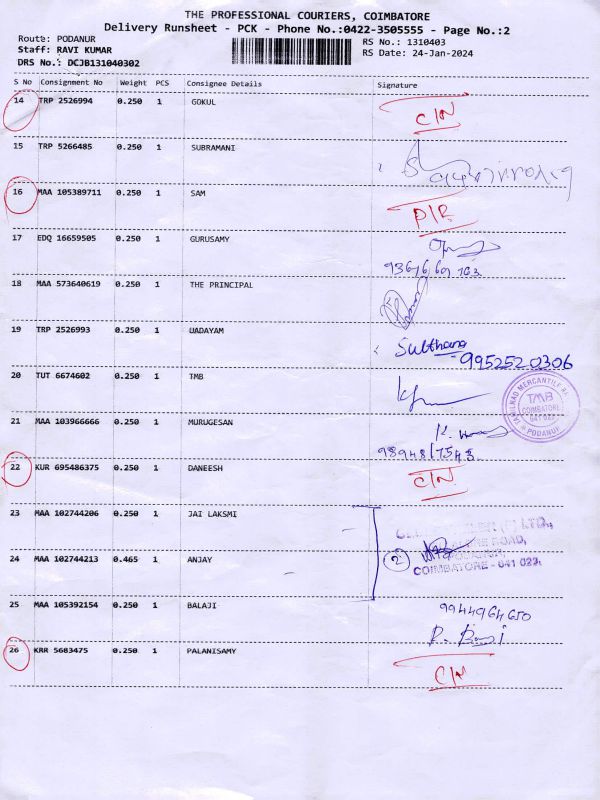 THE PROFESSIONAL COURIERS, COIMBATORE
Delivery Runsheet - PCK - Phone No.:0422-3505555 - Page No.:2
Route: PODANUR
Staff: RAVI KUMAR
DRS No.: DCJB131040302
RS No.: 1310403
RS Date: 24-Jan-2024
S No Consignment No Weight PCS Consignee Details Signature
14 TRP 2526994 0.250 1 GOKUL C/N
15 TRP 5266485 0.250 1 SUBRAMANI
16 MAA 105389711 0.250 1 SAM D/R
17 EDQ 16659505 0.250 1 GURUSAMY
18 MAA 573640619 0.250 1 THE PRINCIPAL
19 TRP 2526993 0.250 1 UADAYAM Sulthana 9952520306
20 TUT 6674602 0.250 1 TMB
TAMILNAD MERCANTILE
TMB
COIMBATORE
641 023
PODANUR
21 MAA 103966666 0.250 1 MURUGESAN
22 KUR 695486375 0.250 1 DANEESH C/N
23 MAA 102744206 0.250 1 JAI LAKSMI
LTD.,
ROAD,
24 MAA 102744213 0.465 1 ANJAY 2
COIMBATORE - 641 023.
25 MAA 105392154 0.250 1 BALAJI 9944964650
26 KRR 5683475 0.250 1 PALANISAMY C/N